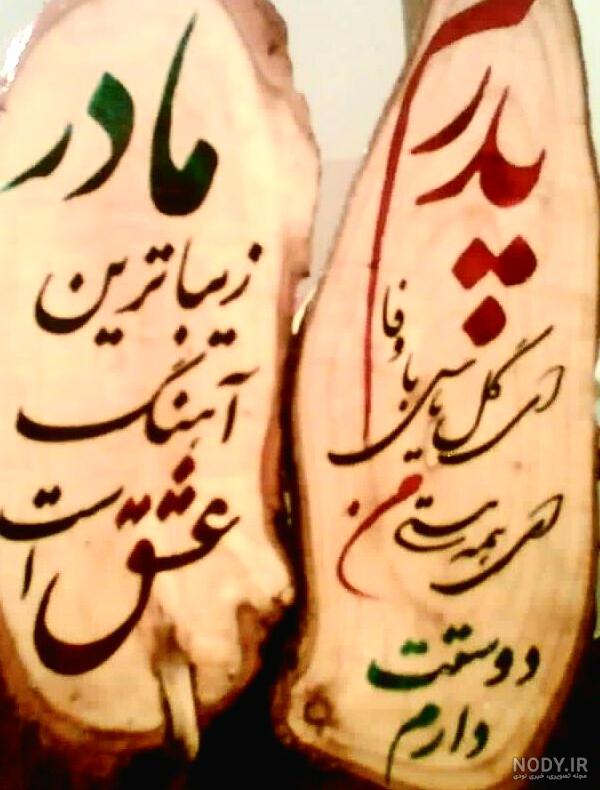 پدرم
ای گل یاس با وفا
ای همه هستی من
دوستت
دارم
مادر
زیباترین
آهنگ
عشق
است
NODY.IR
مجله تصویری، خبری نودی